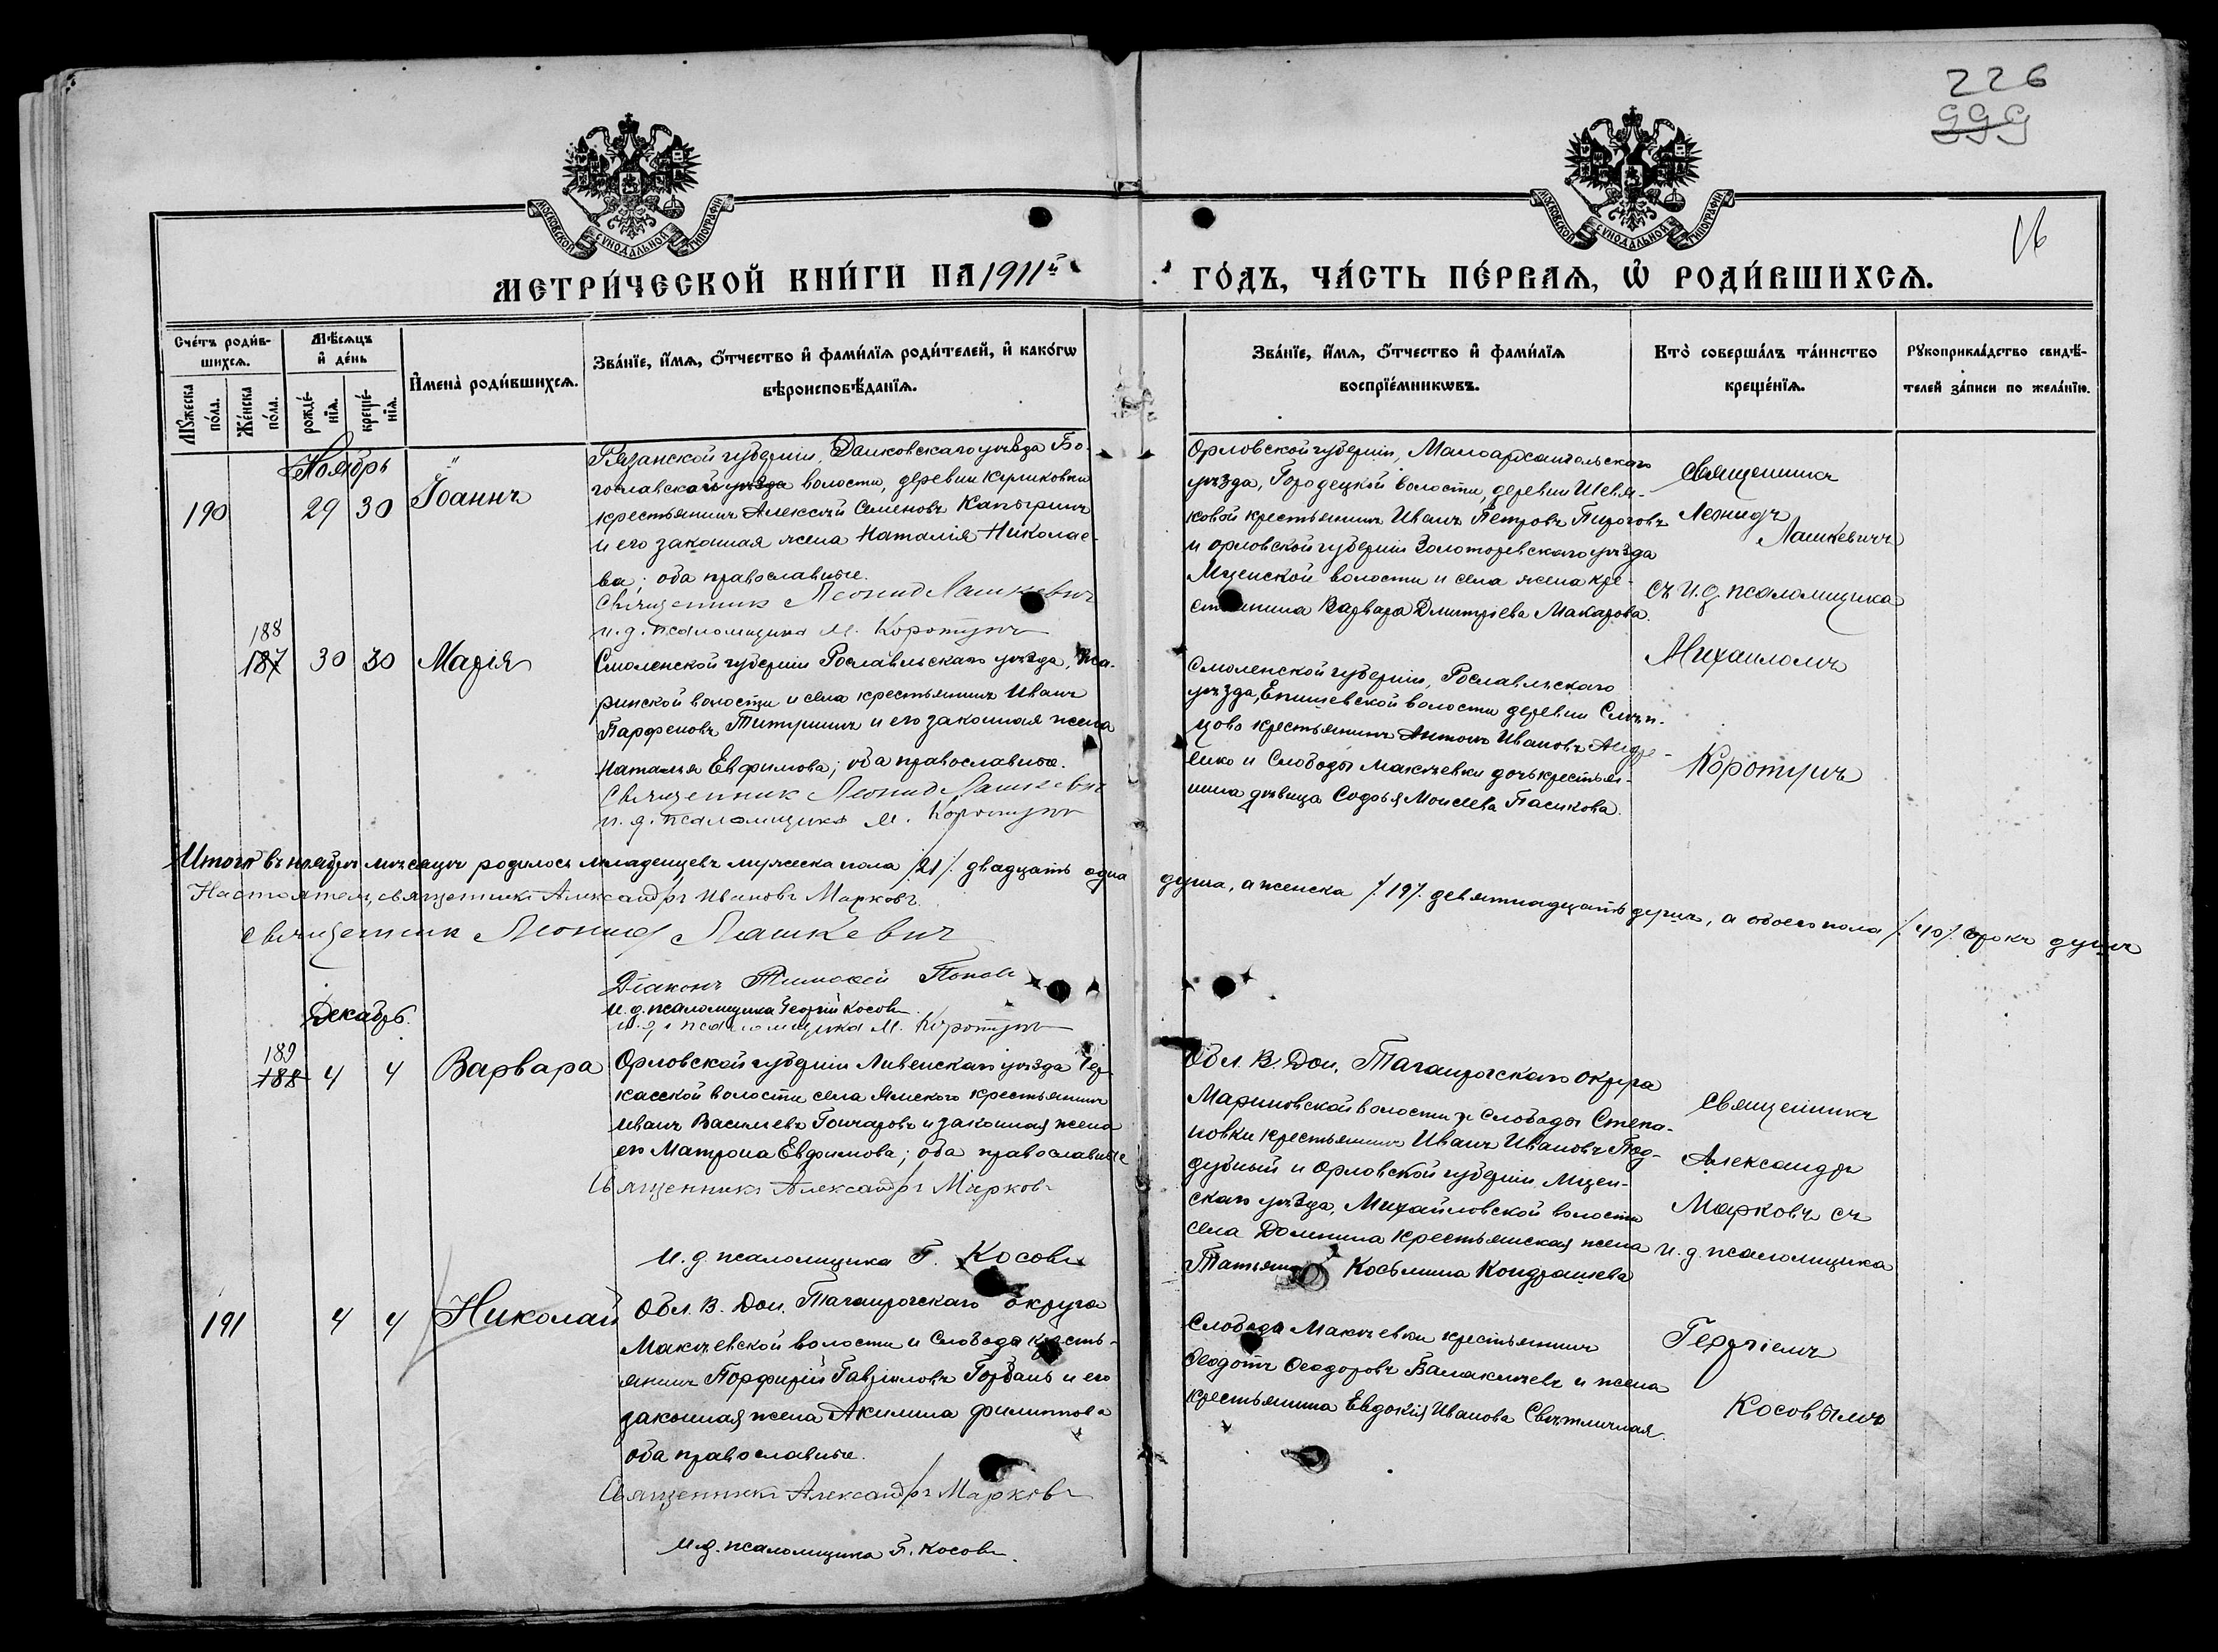 226
999
16
МОСКОВСКОЙ СѴНОДАЛЬНОЙ ТИПОГРАФІИ
МОСКОВСКОЙ СѴНОДАЛЬНОЙ ТИПОГРАФІИ
МЕТРИ́ЧЕСКОЙ КНИ́ГИ НА 1911й
ГО́ДЪ, ЧА́СТЬ ПЕ́РВАѦ, Ѡ҆ РОДИ́ВШИХСѦ.
Сче́тъ роди́вшихсѧ.
Мꙋ́жеска по́ла.
Же́нска по́ла.
Мѣ́сѧцъ и҆ де́нь
рожде́нїѧ.
креще́нїѧ.
И҆мена̀ роди́вшихсѧ.
Зва́нїе, и҆́мѧ, ѻ҆́тчество и҆ фами́лїѧ роди́телей, и҆ како́гѡ
вѣроисповѣ́данїѧ.
Зва́нїе, и҆́мѧ, ѻ҆́тчество и҆ фами́лїѧ
воспрїе́мникѡвъ.
Кто̀ соверша́лъ та́инство
креще́нїѧ.
Рꙋкоприкла́дство свидѣ́телей за́писи по жела́нїю.
Ноябрь
190
29 30
Іоаннъ
Рязанской губерніи, Данковскаго уѣзда Бо-
гославской уѣзда волости, деревни Куликовки
крестьянинъ Алексѣй Семеновъ Капыринъ
и его законная жена Наталія Николае-
ва; оба православные.
Священникъ Леонид Лашкевич
и.д. псаломщика М. Коротунъ
Орловской губерніи, Малоархангельскаго
уѣзда, Городецкой волости, деревни Шевя-
ковой крестьянинъ Иванъ Петровъ Пироговъ
и орловской губерніи Золоторевскаго уѣзда
Мценской волости и села жена кре-
стьянина Варвара Дмитріева Макарова.
Священникъ
Леонидъ
Лашкевичъ
съ и.д. псаломщика
Михаиломъ
Коротунъ
188
187
30 30
Марія
Смоленской губерніи Рославльскаго уѣзда,
ринской волости и села крестьянинъ Иванъ
Парфеновъ Титушинъ и его законная жена
Наталья Евфимова; оба православные.
Священник Леонид Лашкевич
и.д. псаломщика М. Коротунъ
Смоленской губерніи, Рославльскаго
уѣзда, Епишевской волости деревни
цово крестьянинъ Антонъ Ивановъ Андре-
енко и Слободы Макѣевки дочь крестья-
нина дѣвица Софья Моисеева Пасикова.
Итого въ ноябрѣ мѣсяцѣ родилось младенцевъ мужеска пола /21/. двадцать одна душа, а женска /.19/. девятнадцать душъ, а обоего пола /.40/. сорокъ душъ
Настоятель, священникъ Александръ Ивановъ Марковъ.
священник Леонид Лашкевич
Діаконъ Тимоѳей Поповъ
и.д. псаломщика Георгій Косовъ
и.д. псаломщика М. Коротунъ
Декабрь.
189
188
4 4
Варвара
Орловской губерніи Ливенскаго уѣзда Чер-
касской волости села Ямского крестьянинъ
Иванъ Васильевъ Гончаровъ и законная жена
его Матрона Евфимова; оба православные
Священникъ Александръ Марковъ
и.д. псаломщика Г. Косовъ
Обл. В. Дон. Таганрогскаго округа
Мариновской волости и слободы Степа-
новки крестьянинъ Иванъ Ивановъ Под-
дубный и Орловской губерніи Мцен-
скаго уѣзда, Михайловской волости
села Домнина крестьянская жена
Татьяна Косьмина Кондрашева
Священникъ
Александръ
Марковъ съ
и.д. псаломщика
Георгіемъ
Косовымъ
191
4 4
Николай
Обл. В. Дон. Таганрогскаго округа
Макѣевской волости и Слобода кресть-
янинъ Порфирій Гавриловъ Горбань и его
законная жена Акилина Филиппова
оба православные.
Священникъ Александръ Марковъ
и.д. псаломщика Г. Косовъ.
Слобода Макѣевки крестьянинъ
Ѳеодотъ Ѳеодоровъ Балаклѣевъ и жена
крестьянина Евдокія Иванова Свѣтличная.